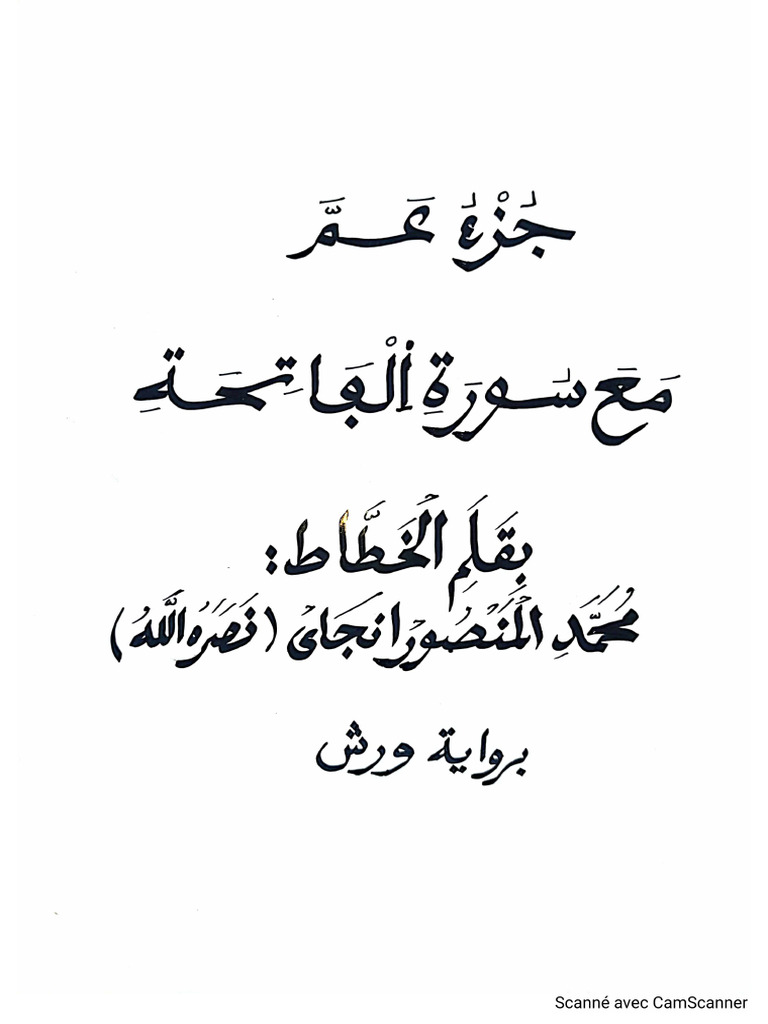 جُزْءُ عَمَّ
مَعَ سُورَةِ اِ۬لْفَاتِحَةِ
بِقَلَمِ الْخَطَّاط:
مُحَمَّدِ الْمَنْصُورْ انجَاىْ (نَصَرَهُ اللَّهُ)
برواية ورش
Scanné avec CamScanner